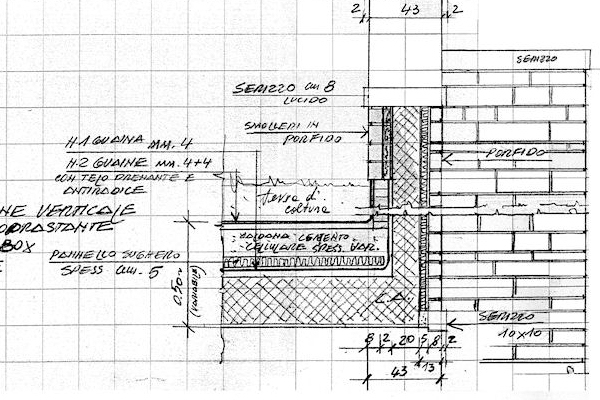 2 43 2
SERIZZO
SERIZZO cm 8
LUCIDO
SMOLLERI IN
PORFIDO
PORFIDO
N.1 GUAINA mm. 4
N.2 GUAINE mm. 4+4
CON TELO DRENANTE E
ANTIRADICE
terra di
coltura
NE VERTICALE
OPRASTANTE
BOX
E
CALDANA CEMENTO
CELLULARE SPESS. VAR.
PANNELLO SUGHERO
SPESS cm. 5
0.50
(VARIABILE)
C.A.
SERIZZO
10x10
8 2 20 5 8 2
13
43